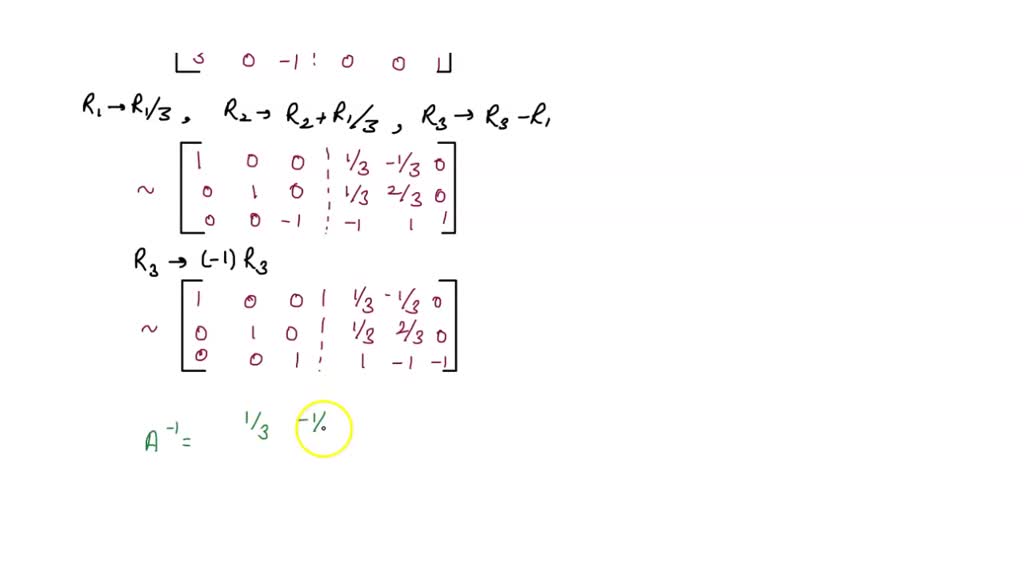 3 0 -1 ⋮ 0 0 1
R₁ → R₁/3 , R₂ → R₂ + R₁/3 , R₃ → R₃ - R₁
1 0 0 | 1/3 -1/3 0
~ 0 1 0 | 1/3 2/3 0
0 0 -1 | -1 1 1
R₃ → (-1) R₃
1 0 0 | 1/3 -1/3 0
~ 0 1 0 | 1/3 2/3 0
0 0 1 | 1 -1 -1
1/3 -1/
A⁻¹ =